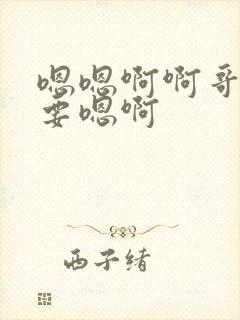 嗯嗯啊啊哥
要嗯啊
西子绪